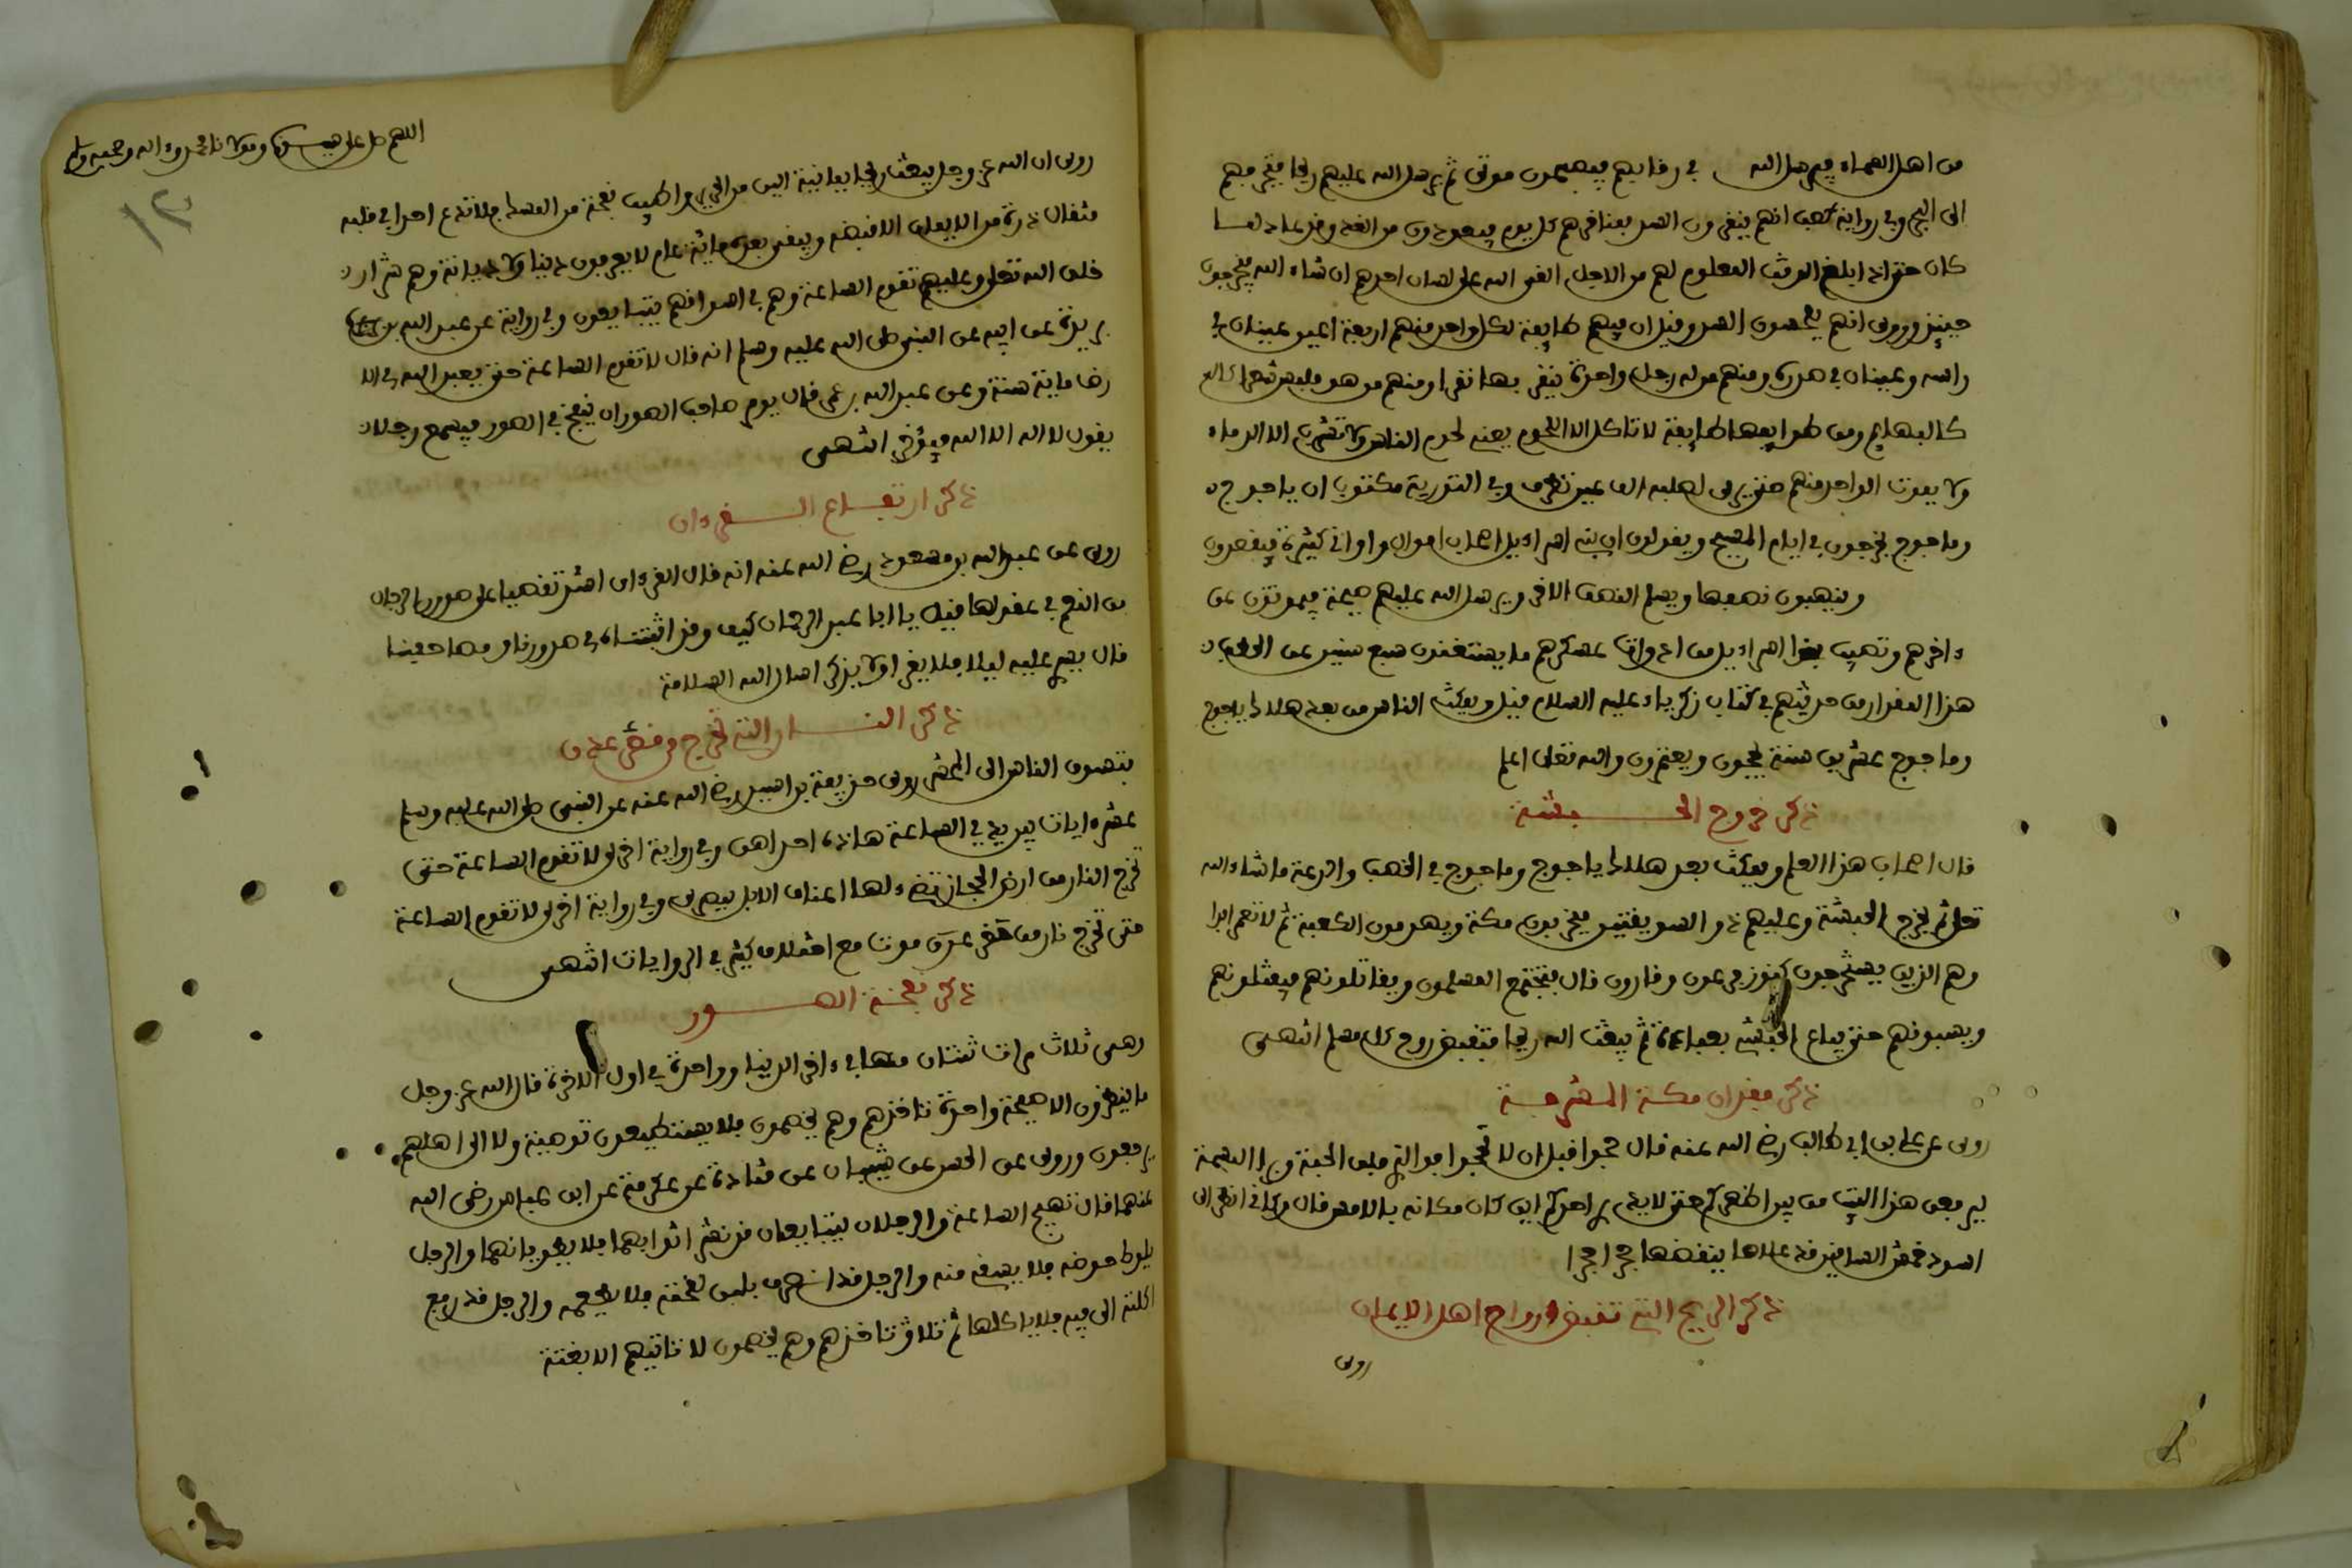 من اهل السماء فيرسل الله في رقابهم فيصبحون موتى ثم يرسل الله عليهم ريحا فتخرجهم
الى البحر وفي رواية كعب انهم ينقرون السد بمناقرهم كل يوم فيعودون من الغد وقد عاد لما
كان حتى اذا بلغ الوقت المعلوم لهم من الاجل القى الله على لسان احدهم ان شاء الله فيخرجون
حينئذ وروى انهم يلحسون السد وقيل ان فيهم طايفة لكل واحد منهم اربعة اعين عينان في
راسه وعينان في صدره ومنهم من له رجل واحدة ينقز بها نقزا ومنهم من هو ملبس شعرا
كالبهايم ومن طوايفها طايفة لا تاكل الا اللحوم يعني لحوم الناس ولا تشرب الا الدماء
ولا يموت الواحد منهم حتى يرى لصلبه الف عين تطرف وفي التورية مكتوب ان ياجوج
وماجوج يخرجون في ايام المسيح ويقولون ان بني اسراءيل اصحاب اموال واواني كثيرة فيقصدون
وينهبون نصفها ويسلم النصف الاخر ويرسل الله عليهم صيحة فيموتون عن
ءاخرهم وتصيب بنوا اسراءيل من ادوات عسكرهم ما يستغنون سبع سنين عن الحطب
هذا المقدار من حديثهم في كتاب زكرياء عليه السلام قيل ويمكث الناس من بعد هلاك ياجوج
وماجوج عشرين سنة يحجون ويعتمرون والله تعلى اعلم
ذكر خروج الحبشة
قال اصحاب هذا العلم ويمكث بعد هلاك ياجوج وماجوج في الخصب والدعة ما شاء الله
تعلى ثم تخرج الحبشة وعليهم ذو السويقتين فيخربون مكة ويهدمون الكعبة ثم لا تعمر ابدا
وهم الذين يستخرجون كنوز فرعون وقارون قال فيجتمع المسلمون ويقاتلونهم فيقتلونهم
ويسبونهم حتى يباع الحبشي بعباءة ثم يبعث الله ريحا فتقبض روح كل مسلم انتهى
ذكر فقدان مكة المشرفة
روى عن علي بن ابي طالب رضي الله عنه قال حجوا قبل ان لا تحجوا فوالذي فلق الحبة وبرا النسمة
ليرفعن هذا البيت من بين اظهركم حتى لا يدري احدكم اين كان مكانه بالامس قال وكاني انظر الى
اسود حمش الساقين قد علاها ينقضها حجرا حجرا
ذكر الريح التي تقبض ارواح اهل الايمان
روى
اللهم صل على سيدنا ومولانا محمد وءاله وصحبه وسلم
١٢
روى ان الله عز وجل يبعث ريحا يمانية الين من الحرير واطيب نفحة من المسك فلا تدع احدا في قلبه
مثقال ذرة من الايمان الا قبضته ويبقى بعد مائة عام لا يعرفون دينا ولا ديانة وهم شرار
خلق الله تعلى وعليهم تقوم الساعة وهم في اسواقهم يتبايعون وفي رواية عن عبد الله بن
بريدة عن ابيه عن النبي صلى الله عليه وسلم انه قال لا تقوم الساعة حتى يعبد الله في الا
رض ماية سنة وعن عبد الله بن عمر قال يوم صاحب الصور ان ينفخ في الصور فيسمع رجلا
يقول لا اله الا الله فيؤخر انتهى
ذكر ارتفاع القرءان
روى عن عبد الله بن مسعود رضي الله عنه انه قال القرءان اشد تفصيا على صدور الرجال
من النعم في عقولها قيل يا ابا عبد الرحمان كيف وقد اثبتناه في صدورنا ومصاحفنا
قال يسرى عليه ليلا فلا يقرا ولا يذكر اسال الله السلامة
ذكر النار التي تخرج من قعر عدن
فتسوق الناس الى المحشر روى حذيفة بن اسيد رضي الله عنه عن النبي صلى الله عليه وسلم
عشر ءايات بين يدي الساعة هاذه احداهن وفي رواية اخرى لا تقوم الساعة حتى
تخرج النار من ارض الحجاز تضيء لها اعناق الابل ببصرى وفي رواية اخرى لا تقوم الساعة
حتى تخرج نار من حضرموت مع اختلاف كثير في الروايات انتهى
ذكر نفخة الصور
وهي ثلاث مرات ثنتان منها في ءاخر الدنيا وواحدة في اول الاخرة قال الله عز وجل
ما ينظرون الا صيحة واحدة تاخذهم وهم يخصمون فلا يستطيعون توصية ولا الى اهلهم
يرجعون وروى عن الحسن عن شيبان عن قتادة عن عكرمة عن ابن عباس رضي الله
عنهما قال تهيج الساعة والرجلان يتبايعان قد نشرا اثوابهما فلا يطويانهما والرجل
يلوط حوضه فلا يسقى منه والرجل قد انصرف بلبن لقحته فلا يطعمه والرجل قد رفع
اكلته الى فيه فلا ياكلها ثم تلا تاخذهم وهم يخصمون لا تاتيهم الا بغتة